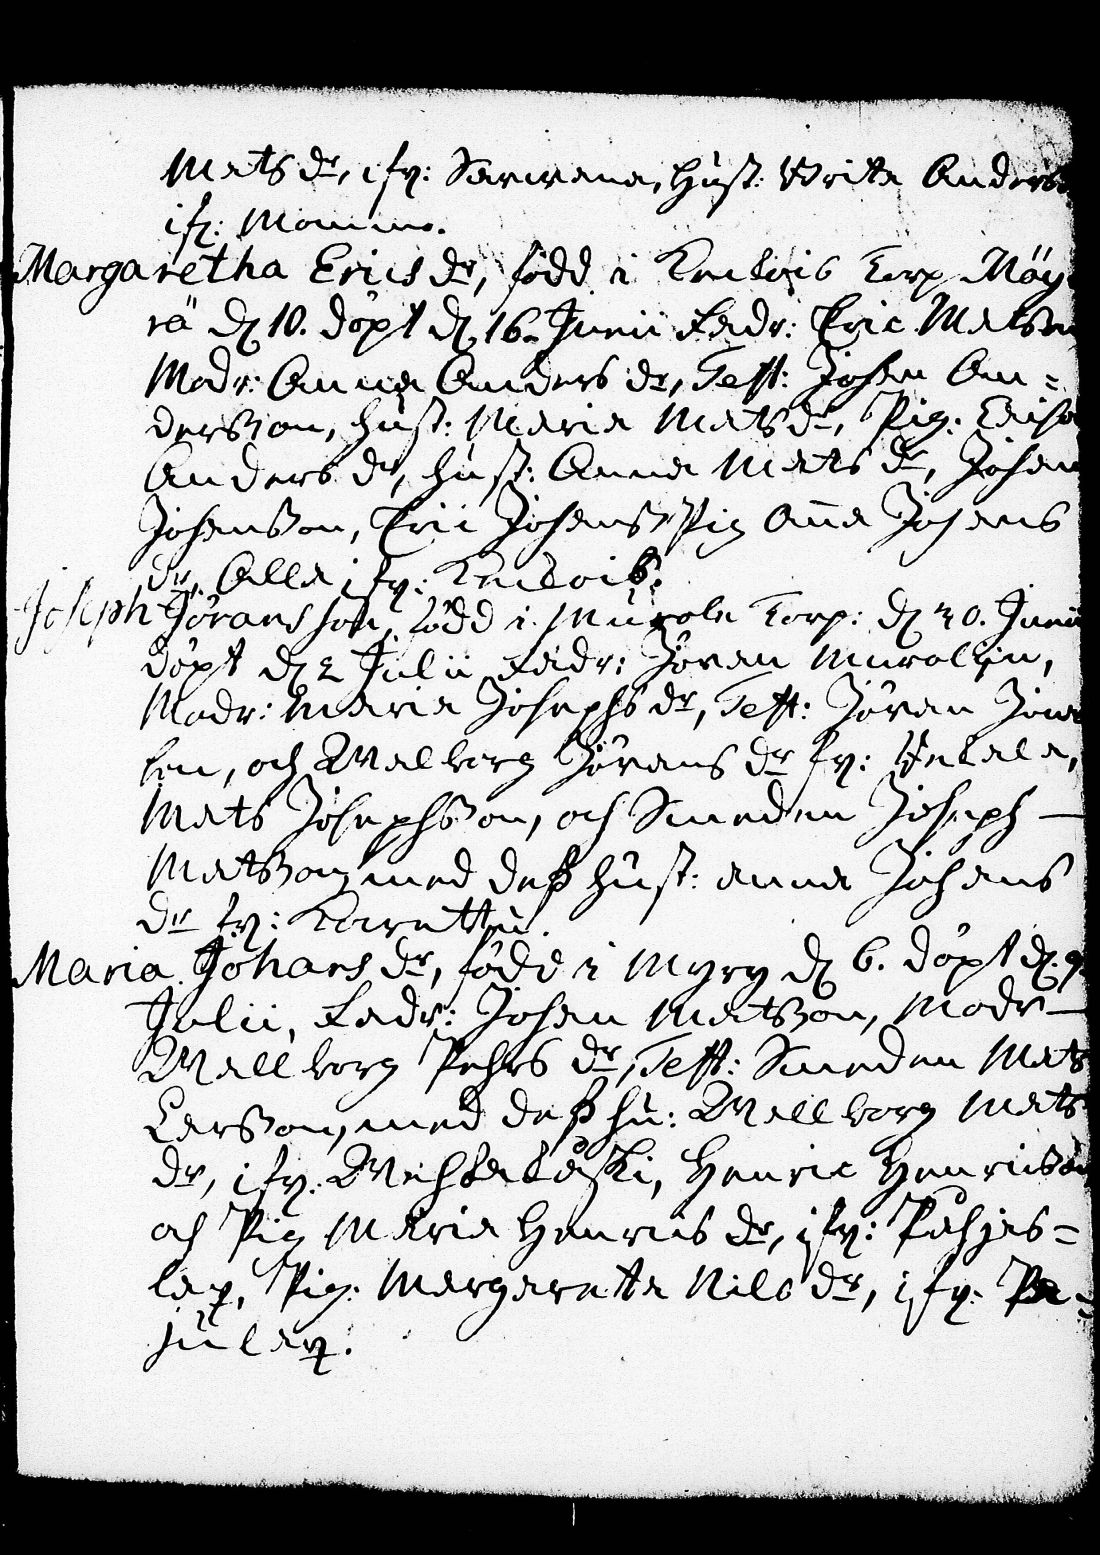 Mats dr, ifr: Sarwana, Hust: Brita Anders
ifr: Mommo.
Margaretha Erics dr, född i Torp Möy
rä d 10. döpt d 16. Junii Fadr: Eric Matson
Modr: Anna Anders dr, Test: Johan An=
dersson, hust: Maria Mats dr, Pig: Lisa
Anders dr, hust: Anna Mats dr, Johan
Johansson, Eric Johans Pig Ana Johans
dr, Alla ifr:
Joseph Jöransson, född i Murola Torp: d 20. Junii
döpt d 2 Julii Fadr: Jöran Murolain,
Modr: Maria Josephs dr, Test: Jöran
son, och Walborg Jörans dr fr:
Mats Josephsson, och Smeden Joseph —
Matsson med dess hust: anna Johans
dr fr:
Maria Johans dr, född i Myry d 6. döpt d 9
Julii, Fadr: Johan Matsson, Modr —
Wallborg Pehrs dr, Test: Smeden Mats
Larsson, med dess hu: Wallborg Mats
dr, ifr: Henric Henricson
och Pig Maria Henrics dr, ifr: Påhjas=
lax, Pig: Margareta Nils dr, ifr: Pa=
julax.